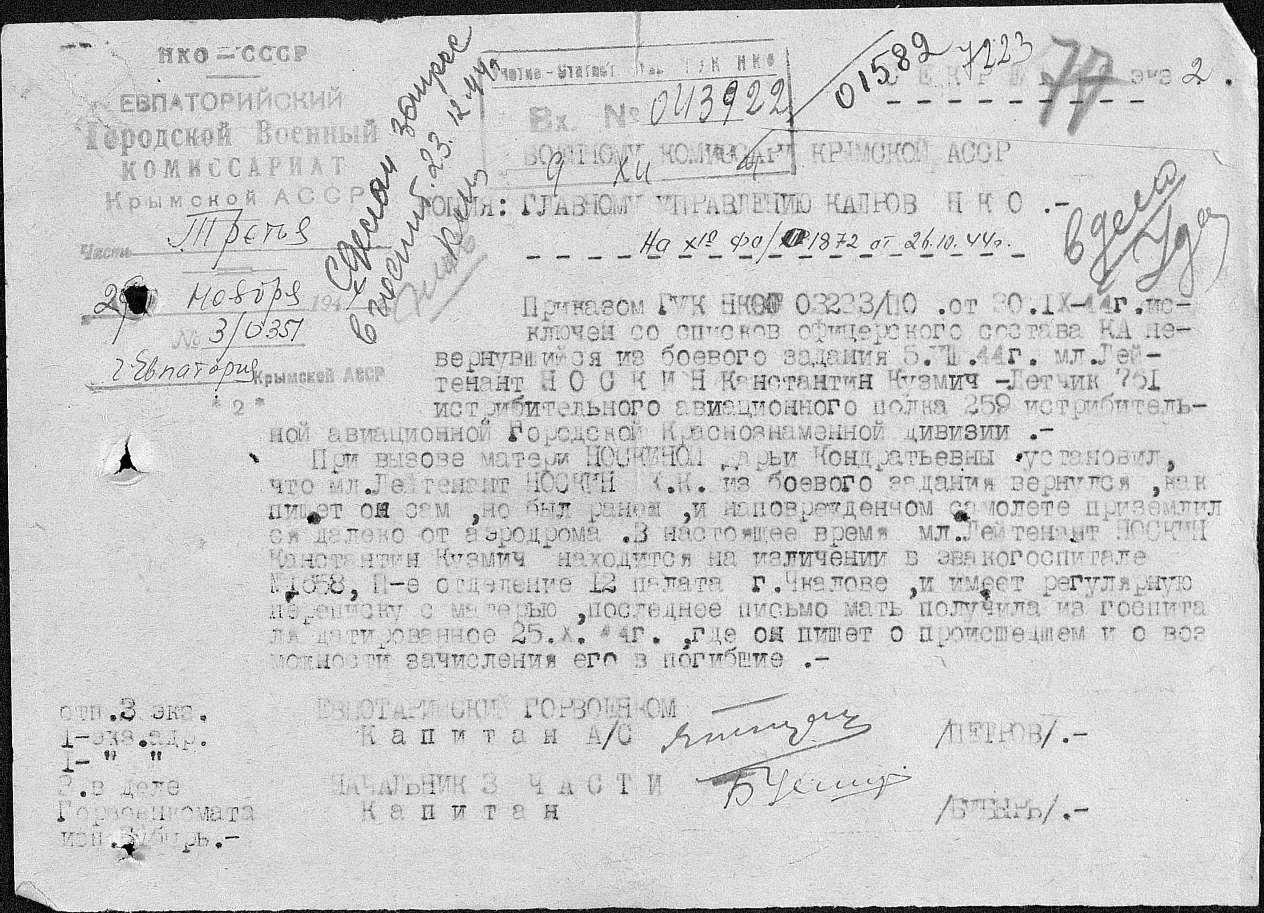 НКО — СССР
ЕВПАТОРИЙСКИЙ
Городской Военный
КОМИССАРИАТ
Крымской АССР
Часть Третья
ноября 194
№ 3/0351
г. Евпатория Крымской АССР
" 2 "
Сделан запрос
в госпит. 23.12.44г.
ГУК НКО
Вх. № 043922
9 XII 4
01582
7223
77
экз 2.
ВОЕННОМУ КОМИССАРУ КРЫМСКОЙ АССР
КОПИЯ: ГЛАВНОМУ УПРАВЛЕНИЮ КАДРОВ Н К О .-
1872 от 26.10.44г.
в дела
Приказом ГУК НКО 03233/ПО .от 30.IX-44г.ис-
ключен со списков офицерского состава КА не-
вернувшийся из боевого задания 5. .44г. мл.Лей-
тенант Н О С К И Н Канстантин Кузмич -Летчик 761
истрибительного авиационного полка 259 истрибитель-
ной авиационной Городской Краснознаменной дивизии .-
При вызове матери НОСКИНОЙ Дарьи Кондратьевны установил,
что мл.Лейтенант НОСКИН К.К. из боевого задания вернулся ,как
пишет он сам ,но был ранен ,и наповрежденном самолете приземлил
ся далеко от аэродрома .В настоящее время мл.Лейтенант НОСКИН
Канстантин Кузмич находится на изличении в эвакогоспитале
№1658, П-е отделение 12 палата г.Чкалове ,и имеет регулярную
переписку с матерью ,последнее письмо мать получила из госпита
ля датированное 25.X.44г. ,где он пишет о происшедшем и о воз
можности зачисления его в погибшие .-
отп.3 экз.
1-экз.адр.
1- " "
3.в деле
Горвоенкомата
исп.Бубырь.-
ЕВПОТАРИЙСКИЙ ГОРВОЕНКОМ
К а п и т а н А/С /ПЕТРОВ/.-
НАЧАЛЬНИК 3 Ч А С Т И
К а п и т а н /БУБЫРЬ/.-